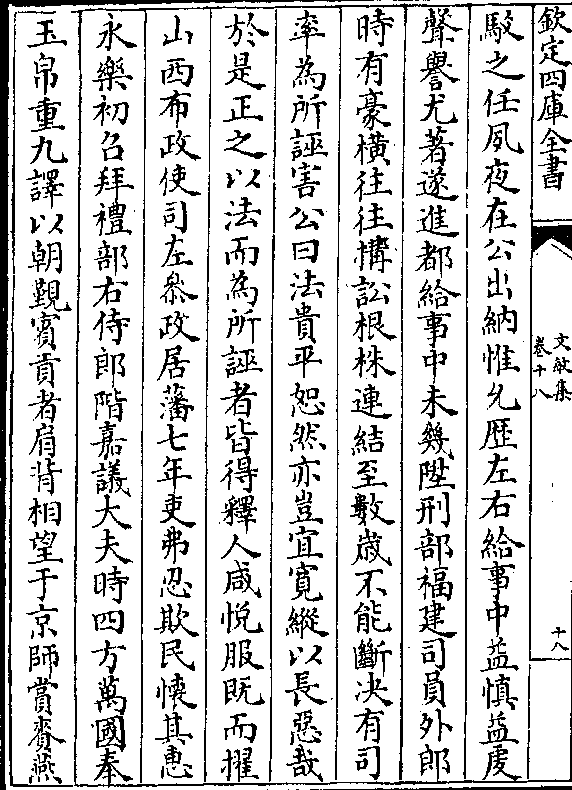 欽定四庫全書
文敏集
卷十八
十八
駮之任夙夜在公出納惟允歴左右給事中益慎益虔
聲譽尤著遂進都給事中未幾陞刑部福建司員外郎
時有豪横往往搆訟根株連結至數歳不能斷决有司
率為所誣害公曰法貴平恕然亦豈宜寛縱以長惡哉
於是正之以法而為所誣者皆得釋人咸悦服既而擢
山西布政使司左叅政居藩七年吏弗忍欺民懷其惠
永樂初召拜禮部右侍郎階嘉議大夫時四方萬國奉
玉帛重九譯以朝覲賓貢者肩背相望于京師賞賚燕